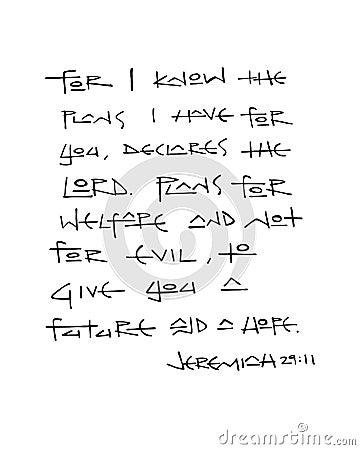 FOR I KNOW THE
PLANS I HAVE FOR
YOU, DECLARES THE
LORD. PLANS FOR
WELFARE AND NOT
FOR EVIL, TO
GIVE YOU A
FUTURE AND A HOPE.
JEREMIAH 29:11
dreamstime.com